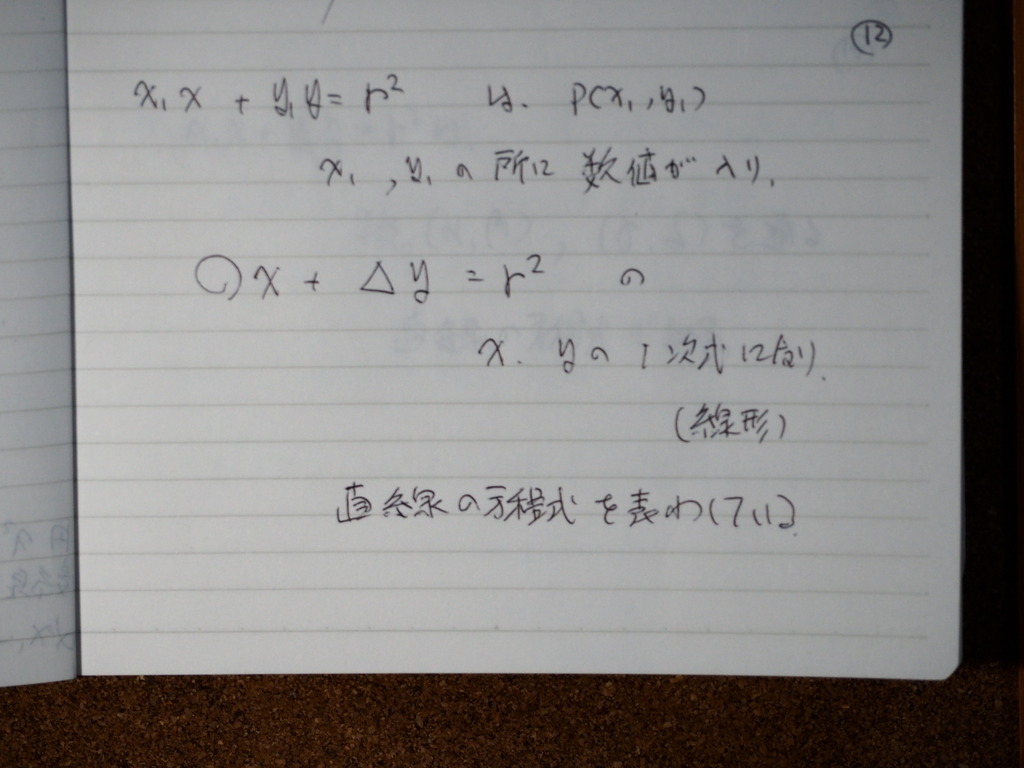 ⑫
x₁x + y₁y = r² は、P(x₁, y₁)
x₁, y₁の所に 数値が入り、
○x + △y = r² の
x、yの1次式になり、
(線形)
直線の方程式を表わしている